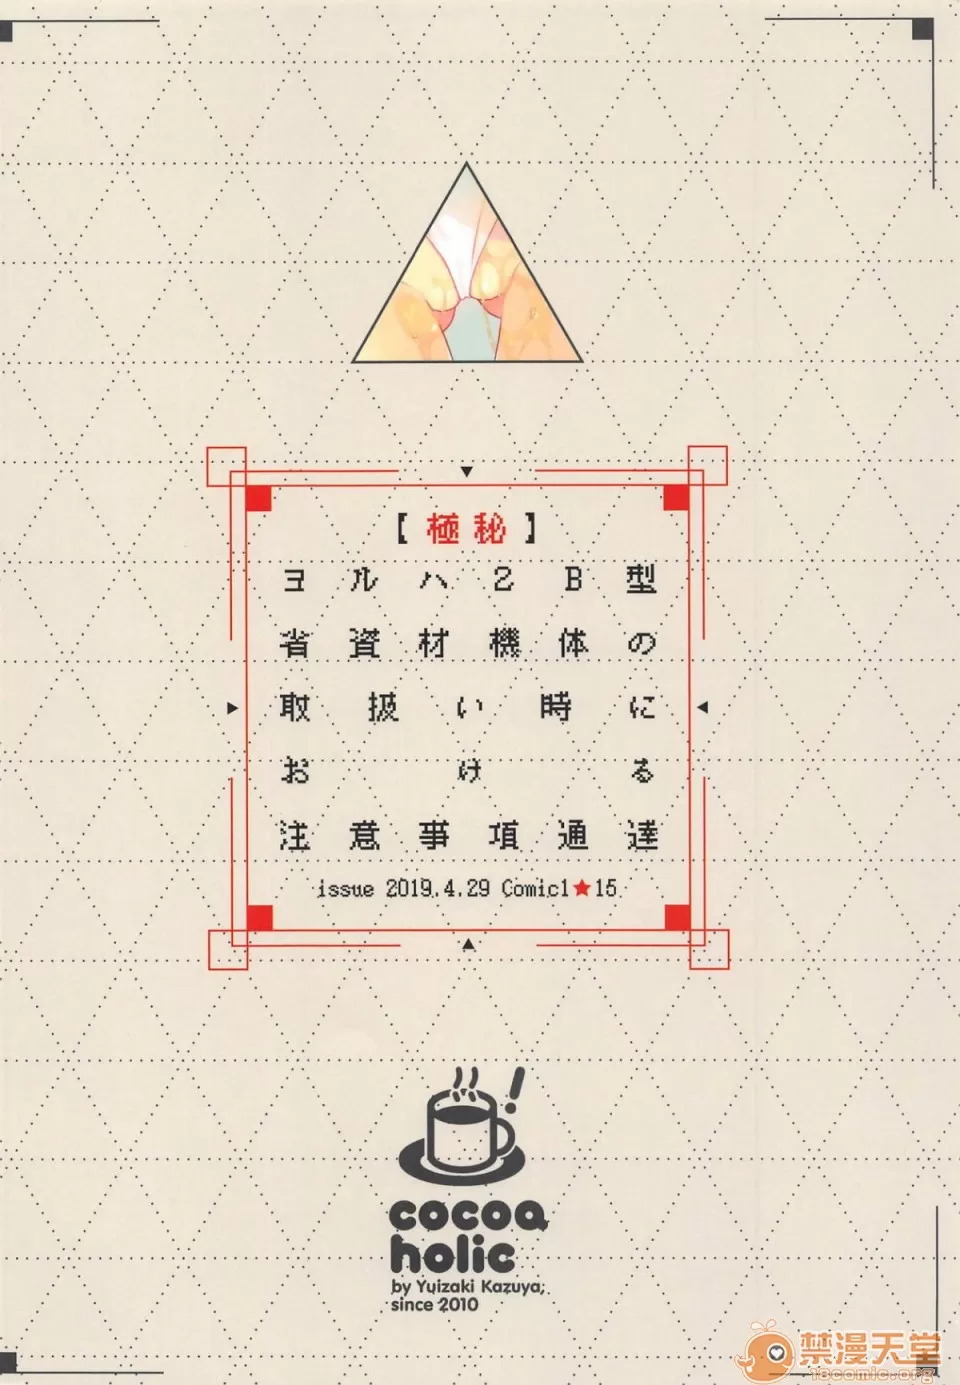 【極秘】
ヨルハ2B型
省資材機体の
取扱い時に
おける
注意事項通達
issue 2019.4.29 Comic1★15
cocoa
holic
by Yuizaki Kazuya;
since 2010
禁漫天堂
18comic.org